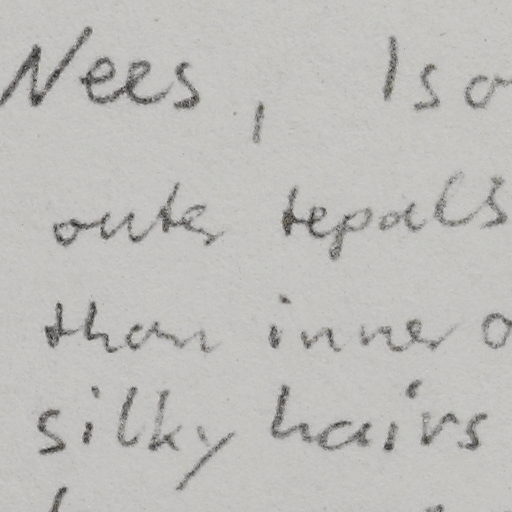 Nees, Iso
outer tepals
than inner o
silky hairs